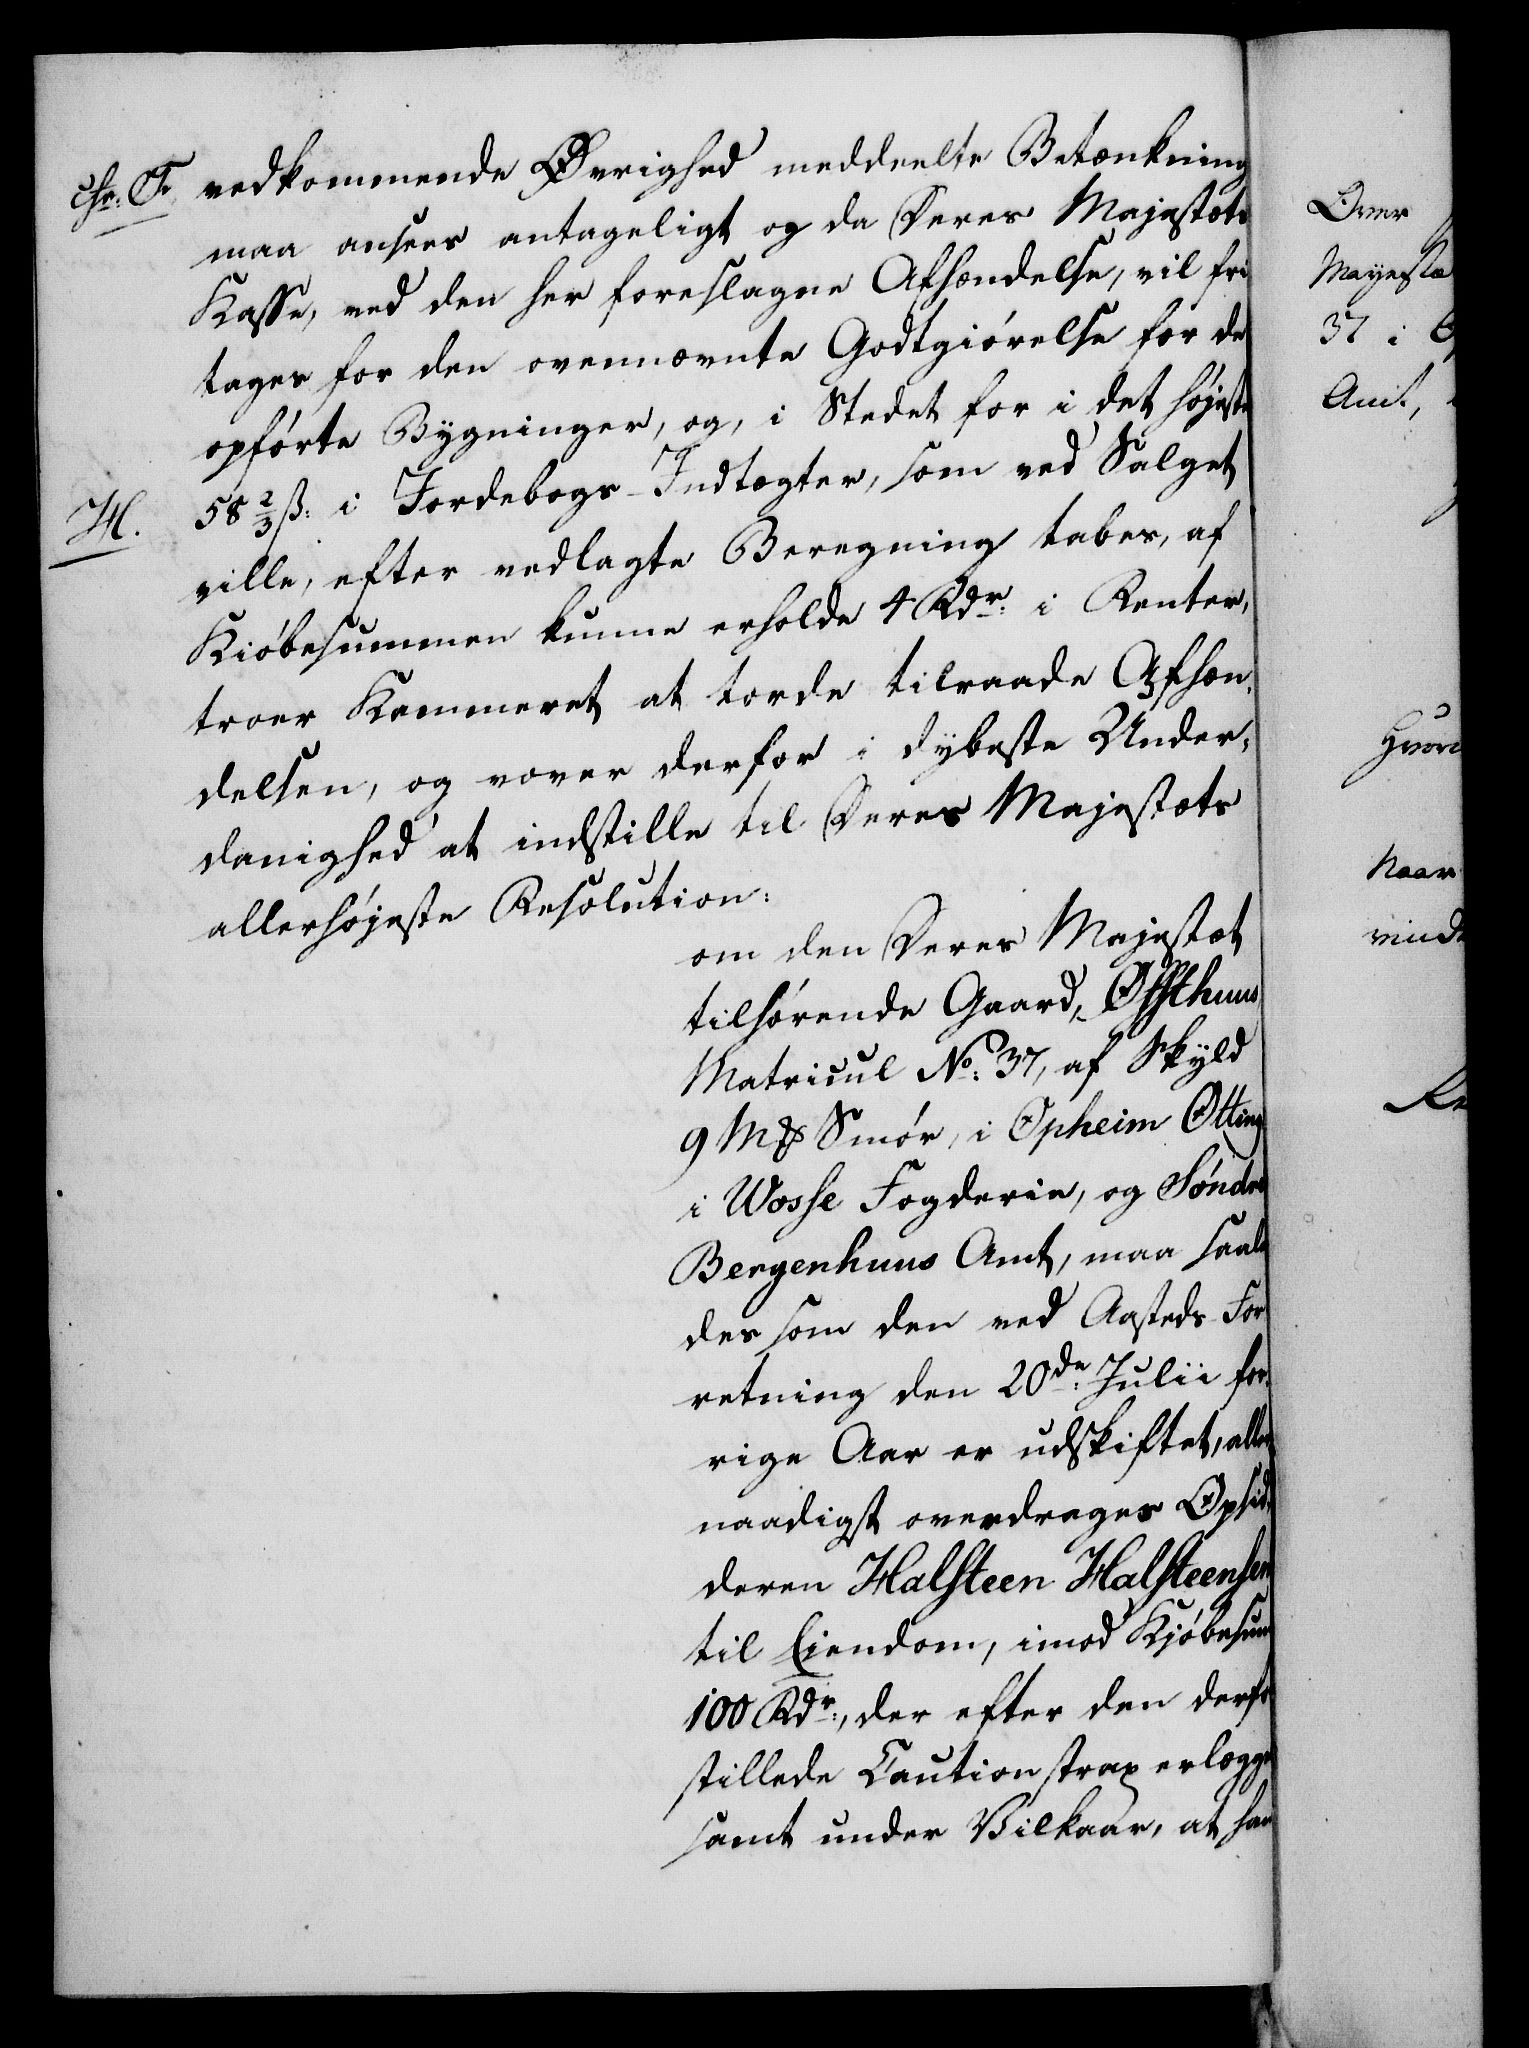 vedkommende Øvrighed meddeelte Betænkning
maa ansees antageligt og da Deres Majestæts
Kasse, ved den her foreslagne Afhændelse, vil fri
tages for den ovennævnte Godtgiørelse for de
opførte Bygninger, og, i Stedet for i det højeste
H. 58 2/3 ß: i Jordebogs-Indtægter, som ved Salget
ville, efter vedlagte Beregning tabes, af
Kiøbesummen kunne erholde 4 Rdr: i Renter,
troer Kammeret at torde tilraade Afhæn-
delsen, og vover derfor i dybeste Under-
danighed at indstille til Deres Majestæts
allerhøjeste Resolution:
om den Deres Majestæt
tilhørende Gaard, Øffsthuus
Matricul No: 37, af Skyld
9 M℔ Smør, i Opheim Otting
i Wosse Fogderie, og Søndre
Bergenhuus Amt, maa saale
des som den ved Aasteds-For
retning den 20de: Julii for-
rige Aar er udskiftet, aller
naadigst overdrages Opsid-
deren Halsteen Halsteensen
til Eiendom, imod Kjøbesum
100 Rdr:, der efter den derfo
stillede Caution strax erlægge
samt under Vilkaar, at han
Over
Mayestæ
37 i
Amt,
Hvor
Naar